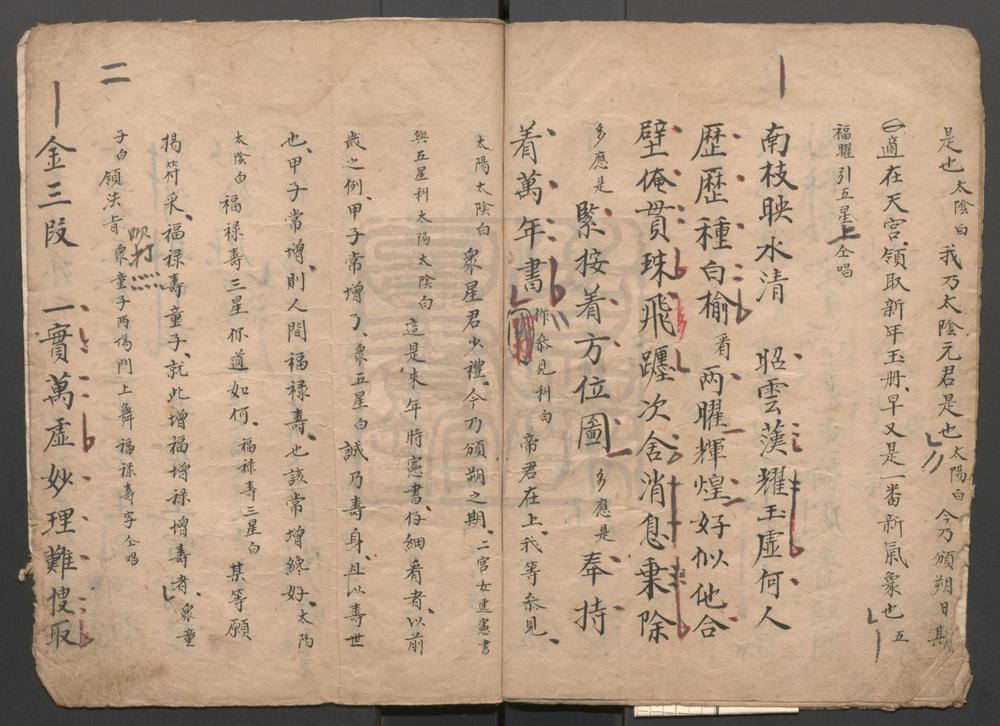 是也太陰白我乃太陰元君是也太陽白今乃頒朔日其
適在天宮領取新年玉册早又是一番新氣象也五
福曜引五星上仝唱
南枝映水清 昭雲漢耀玉虛何人
歷歷種白榆看兩曜輝煌好似他合
璧俺貫珠飛躔次舍消息乗除
多應是緊按着方位圖多應是奉持
着萬年書作叅見科白帝君在上我等叅見
太陽太陰白衆星君少禮今乃頒朔之期二宮女𨔛憲書
與五星科太陽太陰白這是來年時憲書仔細看者以前
歲之例甲子常增了衆五星白誠乃壽身且以壽世
也甲子常增則人間福禄壽也該常增終好太陽
太陰白福禄壽三星你道如何福禄壽三星白某等願
揭符采福禄壽童子就此增福增禄增壽者衆童
子白領法旨吹打衆童子兩塲門上舞福禄壽字仝唱
二
金三段一實萬虛妙理難㥰取